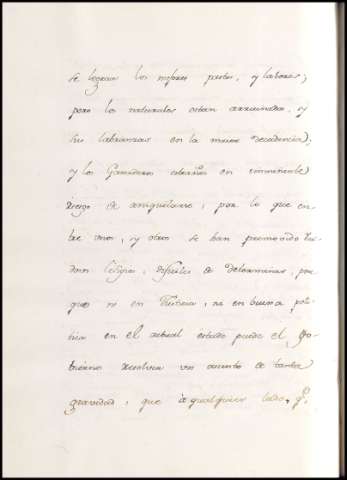 se logran los mejores pastos, y labores;
pero los naturales estan arruinados, y
sus labranzas en la maior decadencia,
y los Ganaderos estraños en inminente
riesgo de aniquilarse; por lo que en-
tre unos, y otros se han promovido rui-
dosos litigios, dificiles de determinar, por
que ni en Justicia, ni en buena poli-
tica en el actual estado puede el Go-
bierno resolver un asunto de tanta
gravedad, que à qualquier lado, qe.